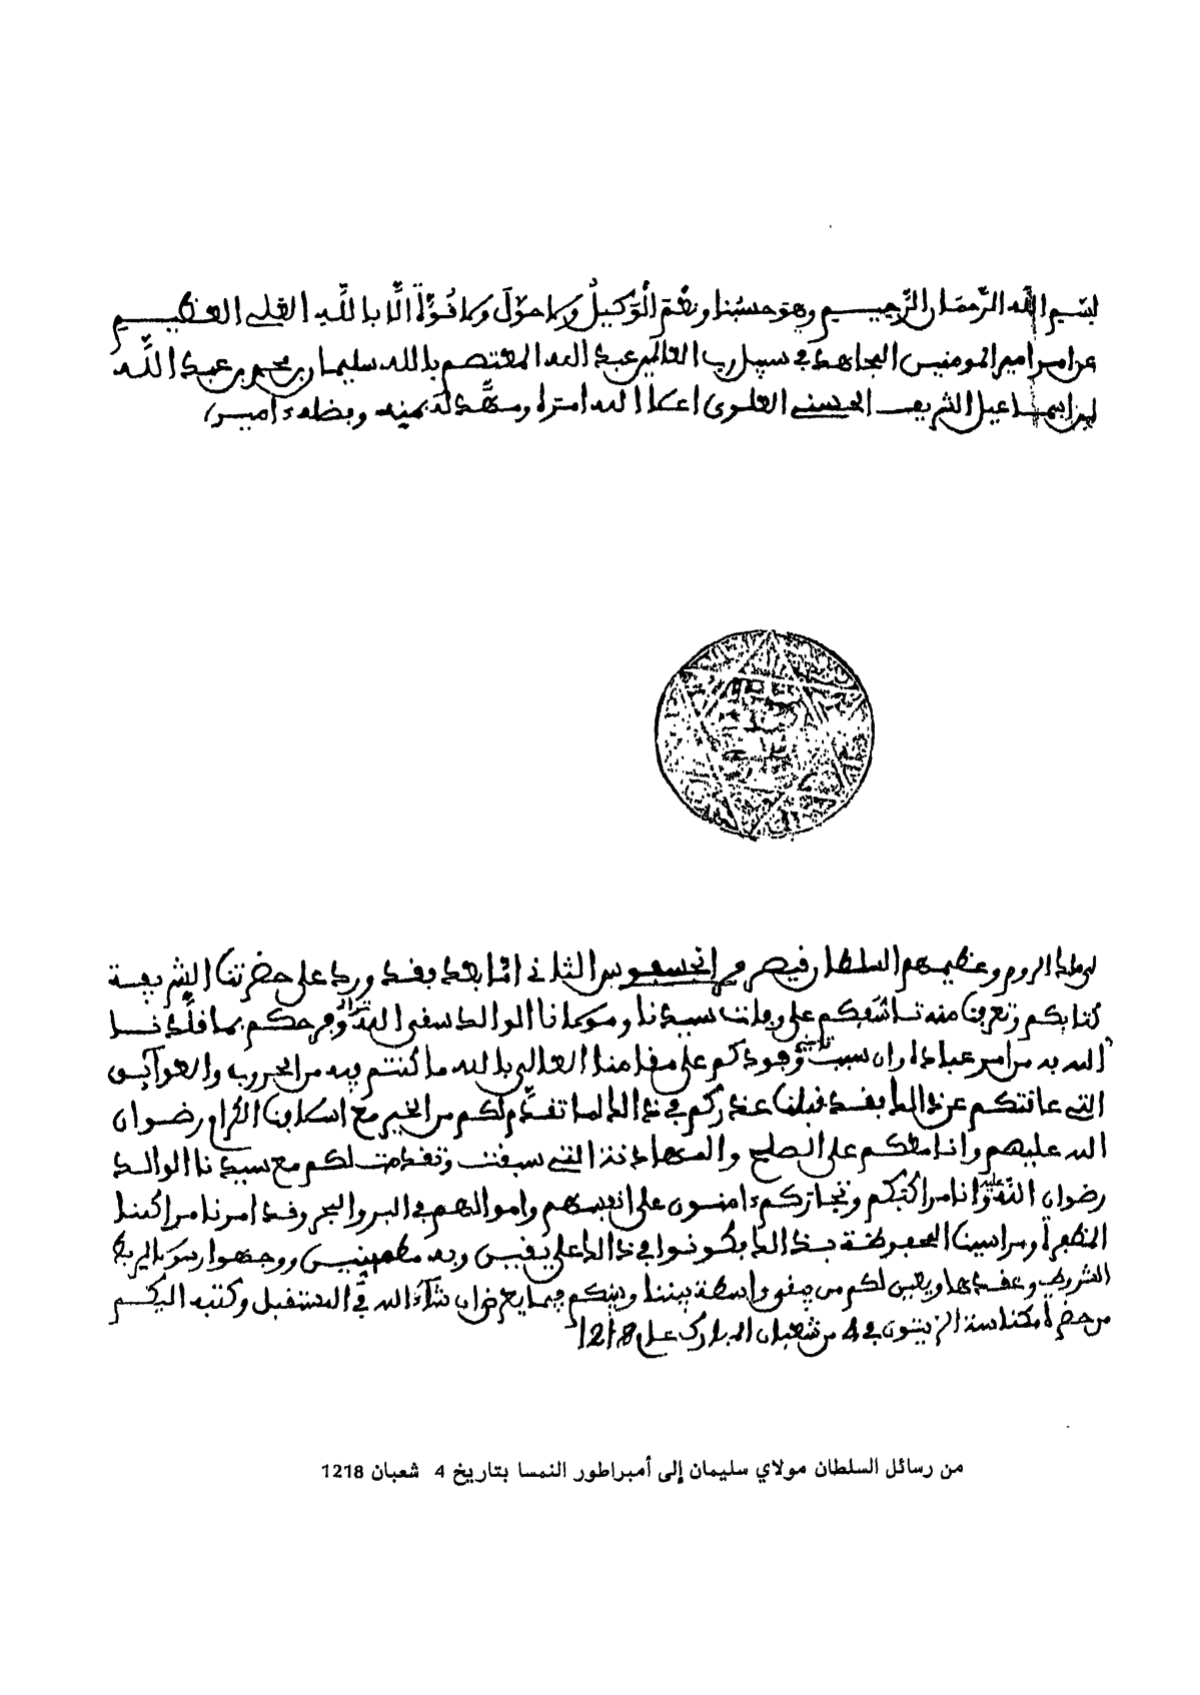 بسم الله الرحمان الرحيم وهو حسبنا ونعم الوكيل ولا حول ولا قوة الا بالله العلي العظيم
من امير المومنين المجاهد في سبيل رب العالمين عبد الله المعتصم بالله سليمان بن محمد بن عبد الله
بن اسماعيل الشريف الحسني العلوي اعلا الله امره وسهد له بمنه وفضله ءامين
الروم وعظيمهم السلطان قيصر افرنسيسوس الثاني اما بعد فقد ورد على حضرتنا الشريفة
كتابكم وتعرفنا منه تاسفكم على وفات سيدنا ومولانا الوالد سقى الله ثراه وفرحكم بما قلدنا
الله به من امر عباده وان سبب تاخير وفودكم على مقامنا العالي بالله ما كنتم فيه من الحروب والعوايق
التي عاقتكم عن ذالك فقد قبلنا عذركم في ذالك لما تقدم لكم من الخير مع اسلافنا الكرام رضوان
الله عليهم وانا معكم على الصلح والمهادنة التي سبقت وتقدمت لكم مع سيدنا الوالد
رضوان الله عليه وانا مراكبكم وتجاركم ءامنون على انفسهم واموالهم في البر والبحر وقد امرنا مراكبنا
المظفرة ومراسينا المحفوظة بذالك فكونوا في ذالك على يقين وبه مطمينين ووجهوا رسولا
الشروط وعقدها ويعين لكم من يبقى واسطة بيننا وبينكم فيما يعرض ان شاء الله في المستقبل وكتبه اليكم
من حضرة مكناسة الزيتون في 4 من شعبان المبارك عام 1218
من رسائل السلطان مولاي سليمان إلى أمبراطور النمسا بتاريخ 4 شعبان 1218